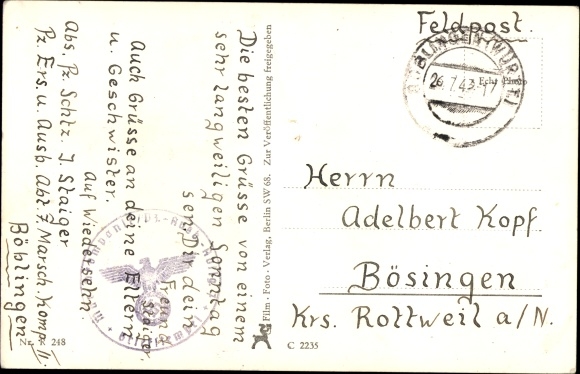 Feldpost.
BÖBLINGEN (WÜRTT)
26.7.43.-17
Echt Photo
Die besten Grüsse von einem
sehr langweiligen Sonntag
sen Dir dein
Freund
Staiger.
Auch Grüsse an deine Eltern
u. Geschwister.
Auf Wiedersehn
Abs. Pz. Schtz. J. Staiger
Pz. Ers. u. Ausb. Abt 7, Marsch. Komp. II.
Böblingen
Herrn
Adelbert Kopf
Bösingen
Krs. Rottweil a/N.
Film-Foto-Verlag, Berlin SW 68. Zur Veröffentlichung freigegeben
Nr. R 248
C 2235